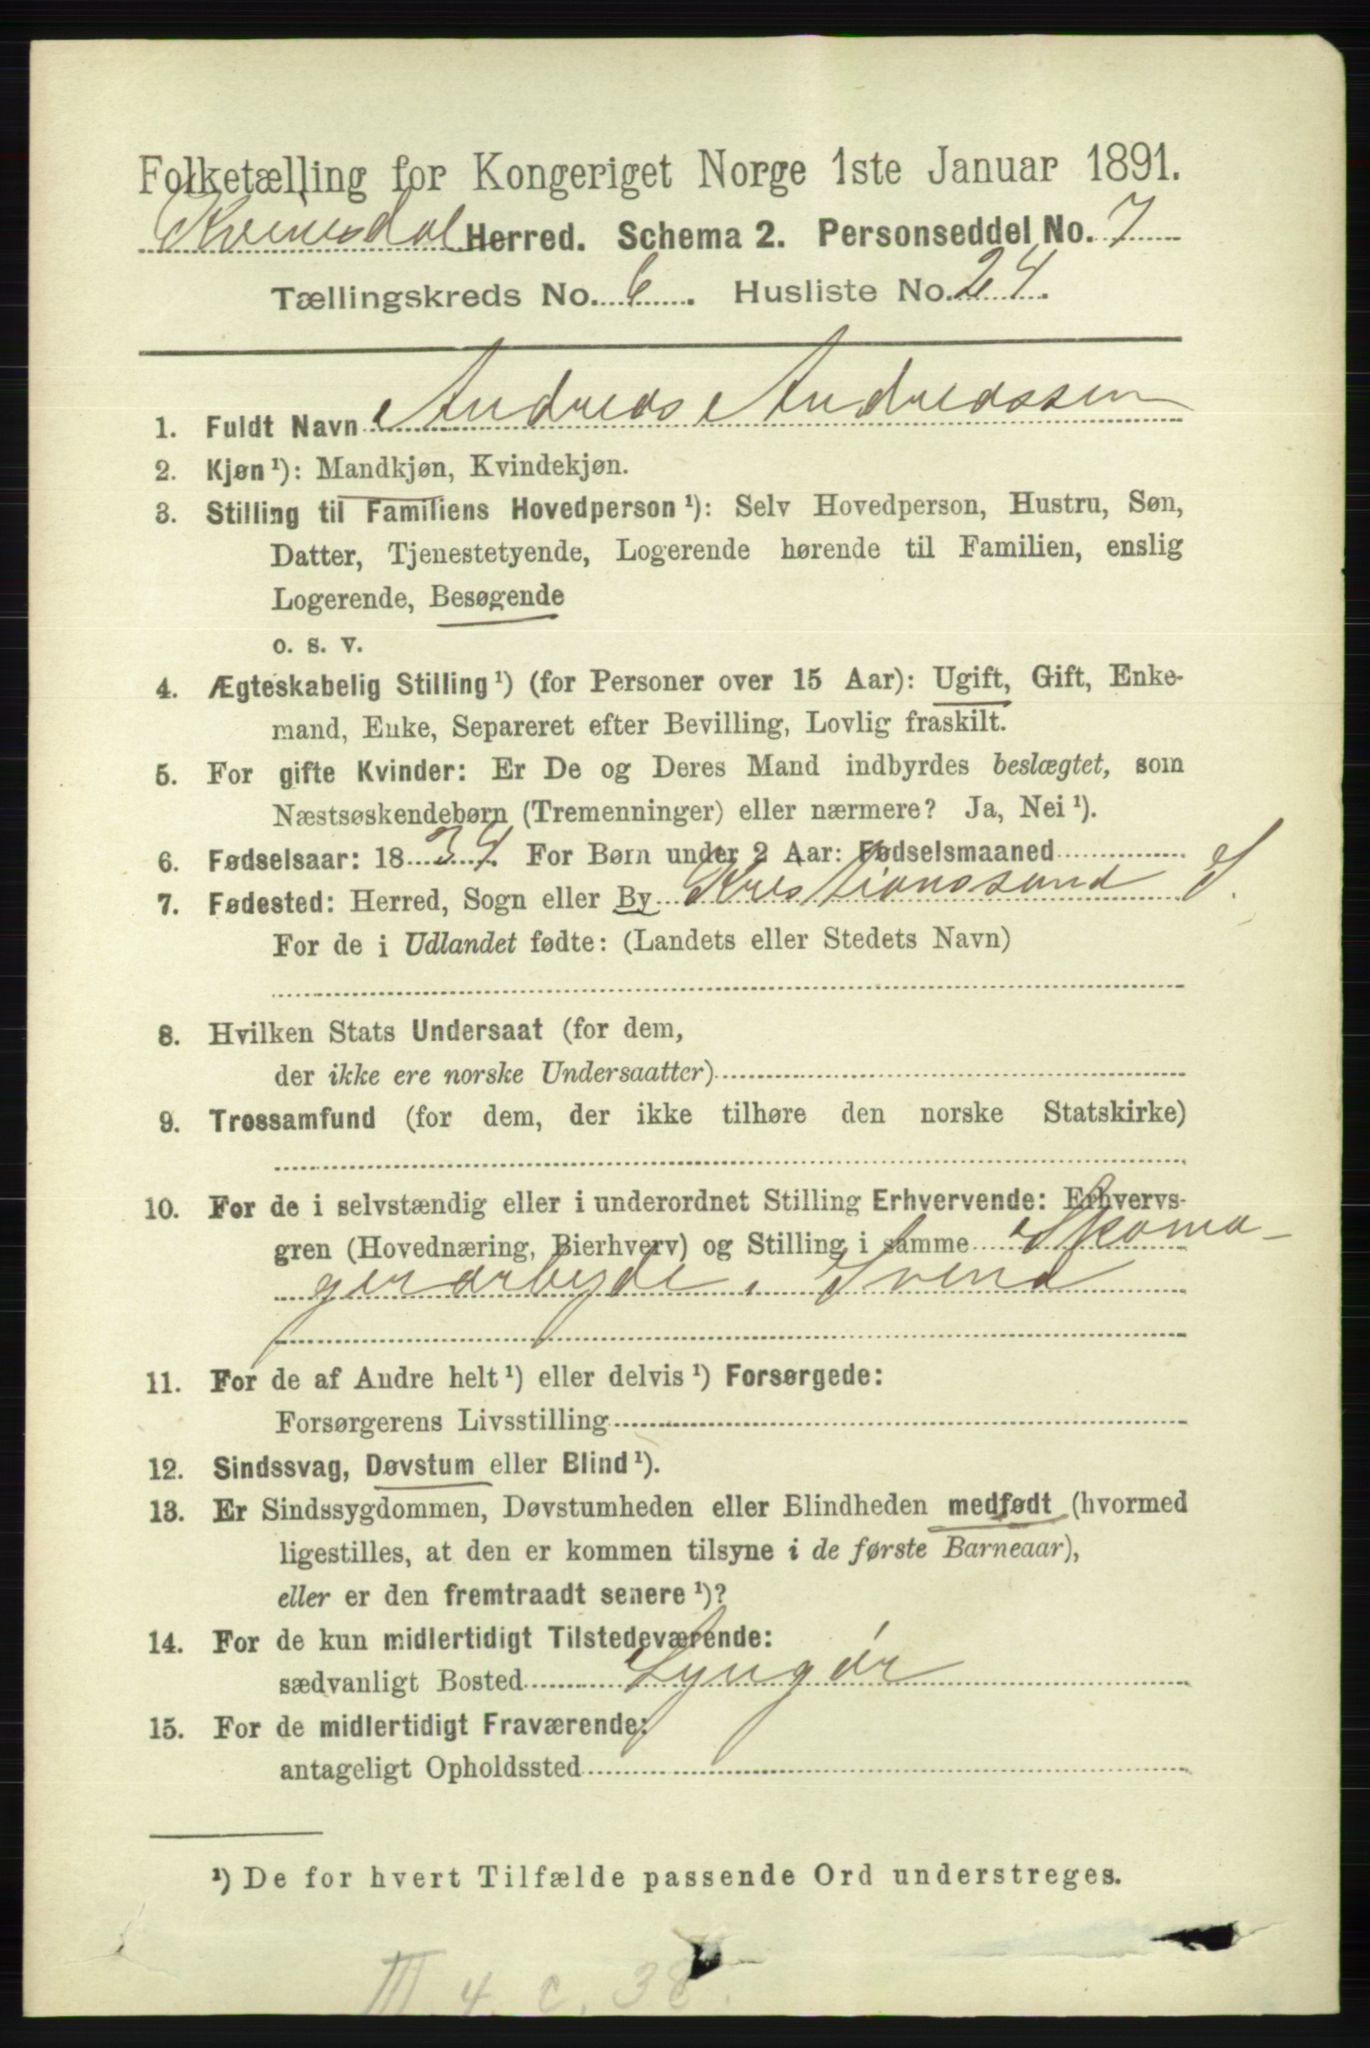 Folketælling for Kongeriget Norge 1ste Januar 1891.
Kvinesdal Herred. Schema 2. Personseddel No. 7
Tællingskreds No. 6. Husliste No. 24.
1. Fuldt Navn Andreas Andreassen
2. Kjøn ¹): Mandkjøn, Kvindekjøn.
3. Stilling til Familiens Hovedperson ¹): Selv Hovedperson, Hustru, Søn,
Datter, Tjenestetyende, Logerende hørende til Familien, enslig
Logerende, Besøgende
o. s. v.
4. Ægteskabelig Stilling ¹) (for Personer over 15 Aar): Ugift, Gift, Enke-
mand, Enke, Separeret efter Bevilling, Lovlig fraskilt.
5. For gifte Kvinder: Er De og Deres Mand indbyrdes beslægtet, som
Næstsøskendebørn (Tremenninger) eller nærmere? Ja, Nei ¹).
6. Fødselsaar: 1834. For Børn under 2 Aar: Fødselsmaaned
7. Fødested: Herred, Sogn eller By Kristianssand S.
For de i Udlandet fødte: (Landets eller Stedets Navn)
8. Hvilken Stats Undersaat (for dem,
der ikke ere norske Undersaatter)
9. Trossamfund (for dem, der ikke tilhøre den norske Statskirke)
10. For de i selvstændig eller i underordnet Stilling Erhvervende: Erhvervs-
gren (Hovednæring, Bierhverv) og Stilling i samme Skoma-
gerarbeyde, Svend
11. For de af Andre helt ¹) eller delvis ¹) Forsørgede:
Forsørgerens Livsstilling
12. Sindssvag, Døvstum eller Blind ¹).
13. Er Sindssygdommen, Døvstumheden eller Blindheden medfødt (hvormed
ligestilles, at den er kommen tilsyne i de første Barneaar),
eller er den fremtraadt senere ¹)?
14. For de kun midlertidigt Tilstedeværende:
sædvanligt Bosted Lyngør
15. For de midlertidigt Fraværende:
antageligt Opholdssted
¹) De for hvert Tilfælde passende Ord understreges.
III 4. c. 38.